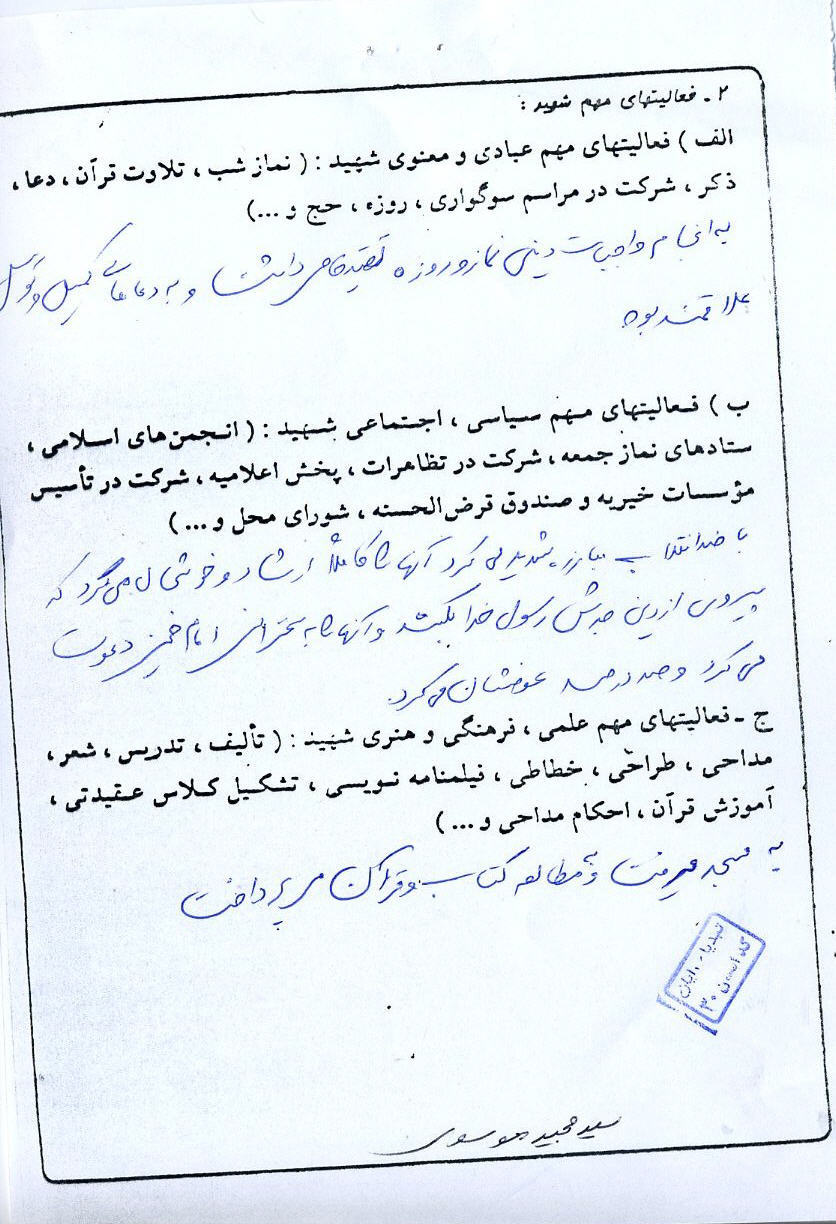 ۲ - فعالیتهای مهم شهید :
الف ) فعالیتهای مهم عبادی و معنوی شهید : ( نماز شب ، تلاوت قرآن ، دعا ،
ذکر ، شرکت در مراسم سوگواری ، روزه ، حج و ...)
به انجام واجبات دینی نماز و روزه تقید خاصی داشت و به دعاهای کمیل و توسل
علاقمند بود
ب ) فعالیتهای مهم سیاسی ، اجتماعی شهید : ( انجمن‌های اسلامی ،
ستادهای نماز جمعه ، شرکت در تظاهرات ، پخش اعلامیه ، شرکت در تأسیس
مؤسسات خیریه و صندوق قرض‌الحسنه ، شورای محل و ... )
با ضد انقلاب مبارزه شدید می کرد آنها را کاملاً ارشاد و می کرد که
پیروی از دین جدش رسول خدا بکنند و آنها را به سخنرانی امام خمینی دعوت
می کرد و صد در صد عوضشان می کرد.
ج - فعالیتهای مهم علمی ، فرهنگی و هنری شهید : ( تألیف ، تدریس ، شعر ،
مداحی ، طراحی ، خطاطی ، فیلمنامه نویسی ، تشکیل کلاس عقیدتی ،
آموزش قرآن ، احکام مداحی و ... )
به مسجد میرفت و به مطالعه کتاب و قرآن می پرداخت
۳۰
سید مجید موسوی